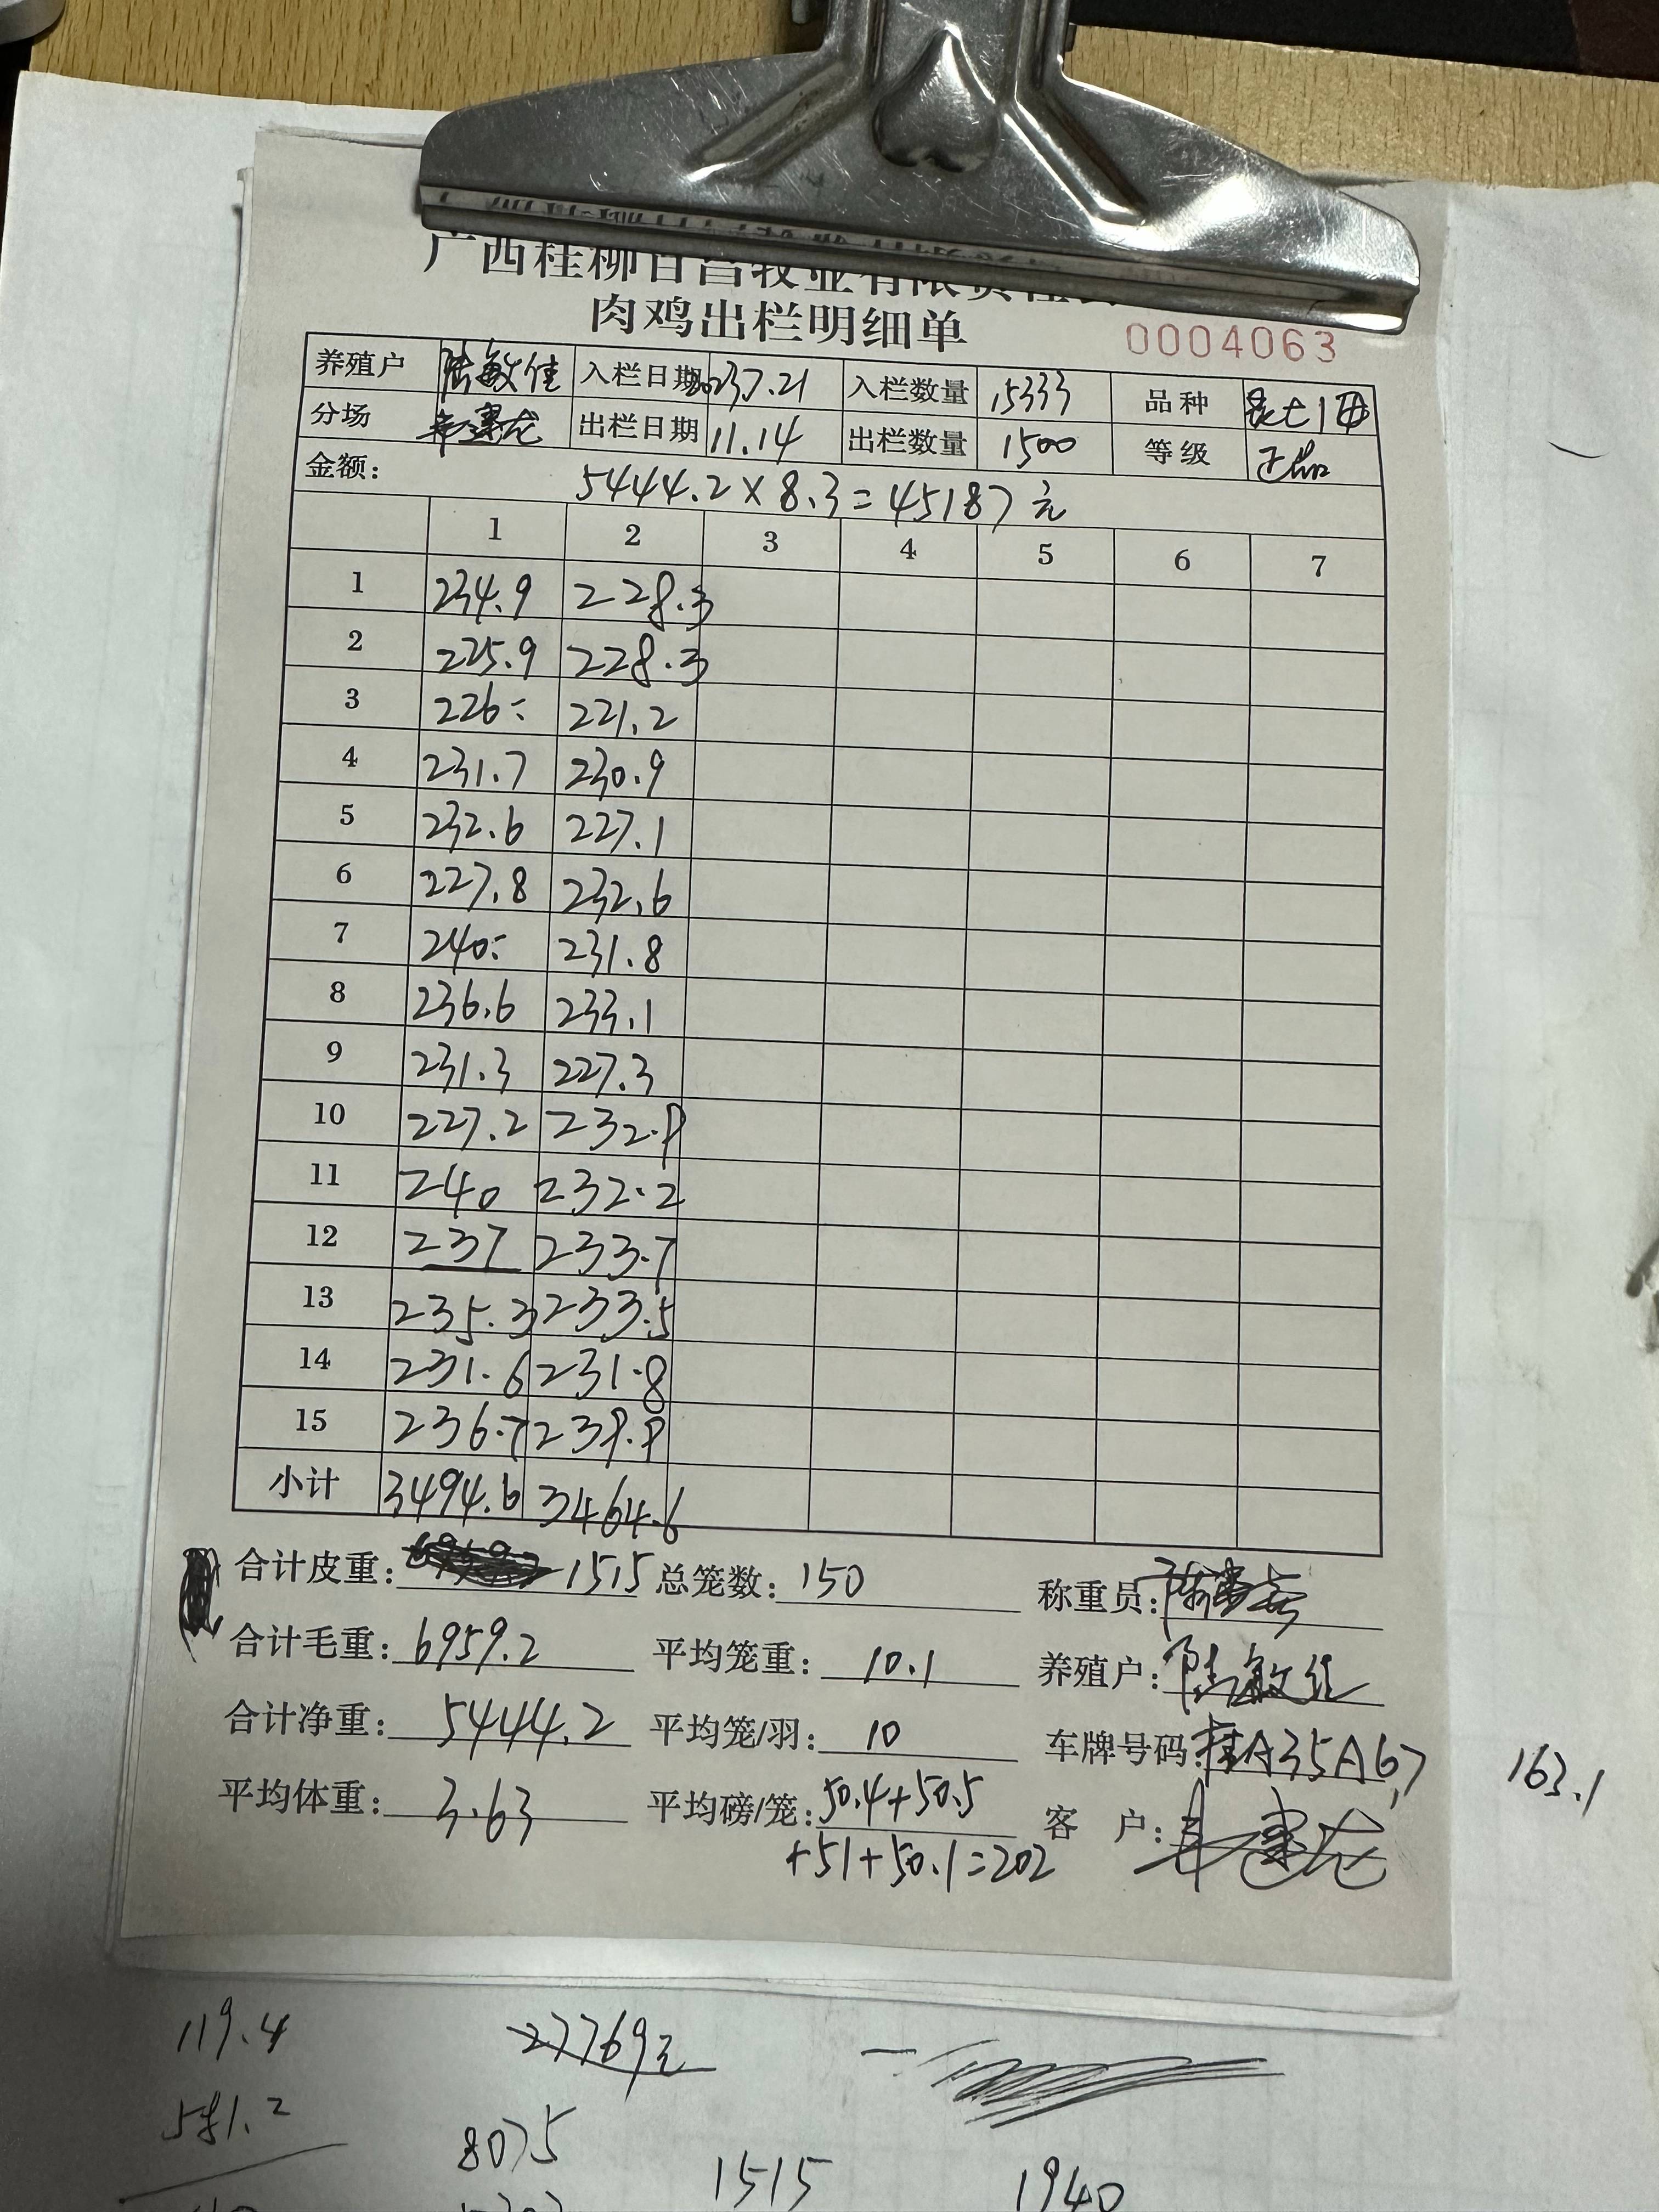 广西桂柳百昌牧业有限责任
肉鸡出栏明细单
0004063
养殖户 陆敏佳 入栏日期 2023.7.21 入栏数量 15333 品种
分场 出栏日期 11.14 出栏数量 1500 等级 正品
金额: 5444.2×8.3=45187元
1 2 3 4 5 6 7
1 234.9 228.3
2 225.9 228.3
3 226= 221.2
4 231.7 230.9
5 232.6 227.1
6 227.8 232.6
7 240= 231.8
8 236.6 233.1
9 231.3 227.3
10 227.2 232.8
11 240 232.2
12 237 233.7
13 235.3 233.5
14 231.6 231.8
15 236.7 238.8
小计 3494.6 3464.6
合计皮重: 1515 总笼数: 150 称重员:
合计毛重: 6959.2 平均笼重: 10.1 养殖户: 陆敏佳
合计净重: 5444.2 平均笼/羽: 10 车牌号码: 桂A35A67
163.1
平均体重: 3.63 平均磅/笼: 50.4+50.5 客户:
+51+50.1=202
119.4 27769元
8075
1515 1940